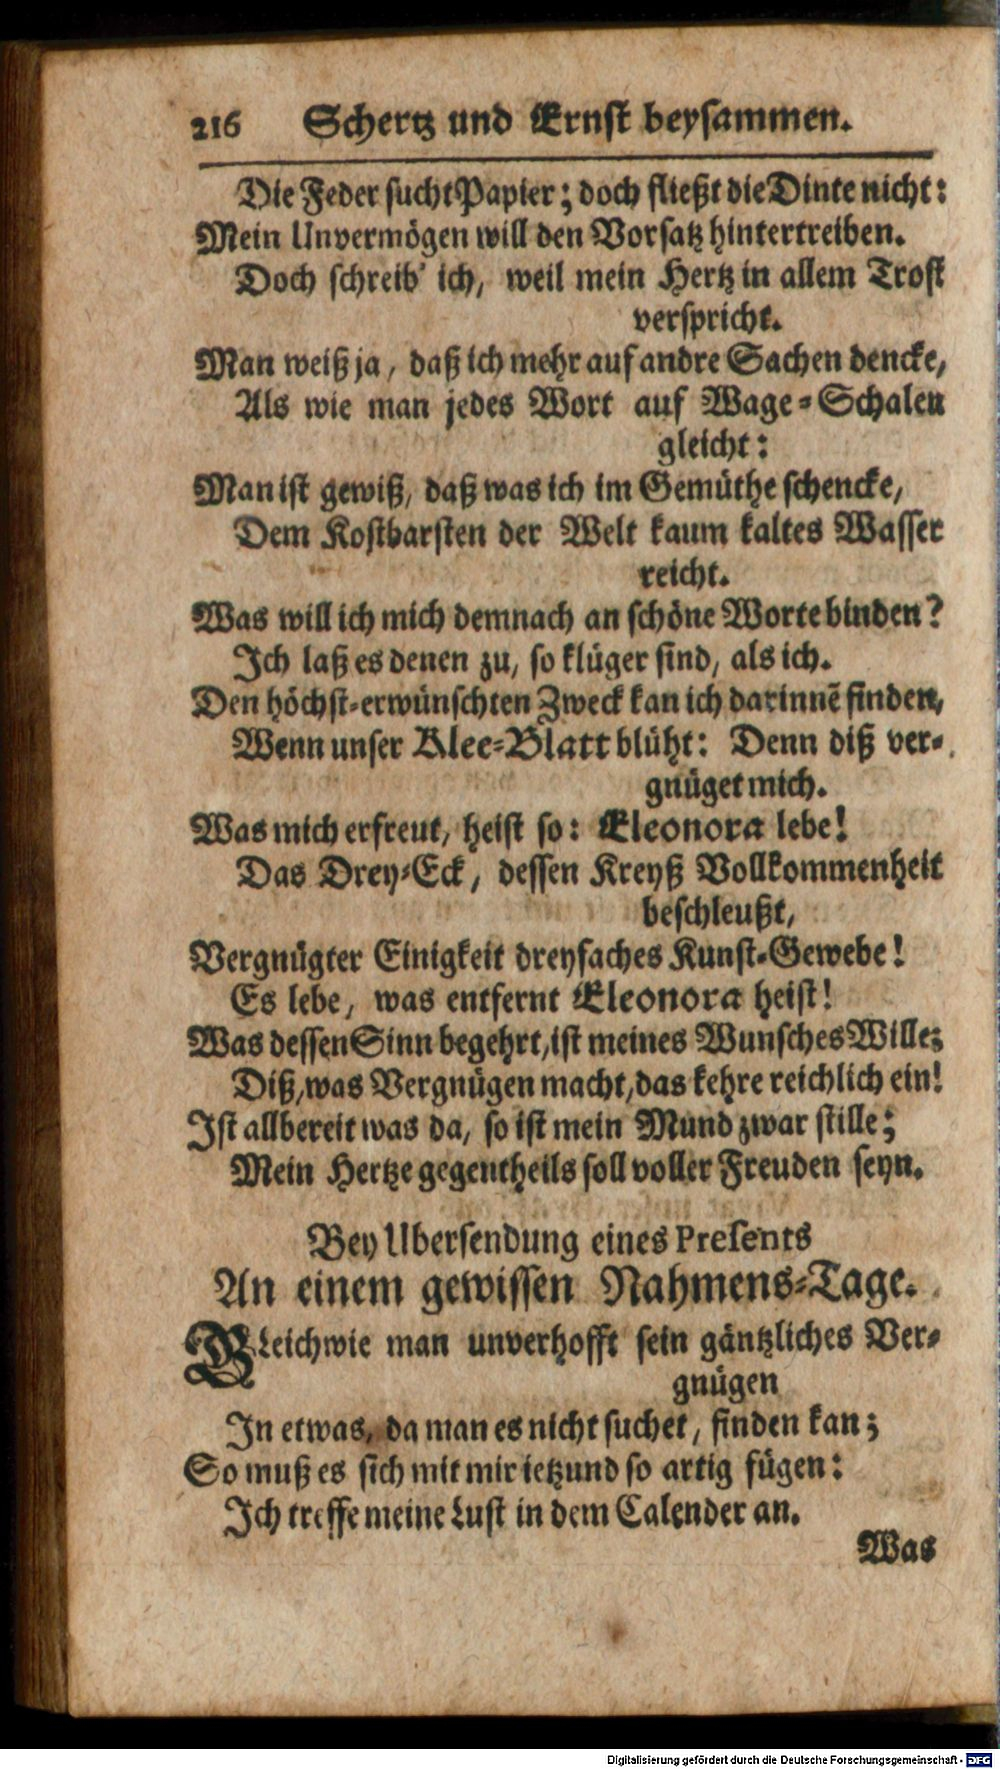 216 Schertz und Ernst beysammen.
Die Feder sucht Papier; doch fließt die Dinte nicht:
Mein Unvermögen will den Vorsatz hintertreiben.
Doch schreib' ich, weil mein Hertz in allem Trost
verspricht.
Man weiß ja, daß ich mehr auf andre Sachen dencke,
Als wie man jedes Wort auf Wage-Schalen
gleicht:
Man ist gewiß, daß was ich im Gemüthe schencke,
Dem Kostbarsten der Welt kaum kaltes Wasser
reicht.
Was will ich mich demnach an schöne Worte binden?
Ich laß es denen zu, so klüger sind, als ich.
Den höchst-erwünschten Zweck kan ich darinnẽ finden,
Wenn unser Klee-Blatt blüht: Denn diß ver-
gnüget mich.
Was mich erfreut, heist so: Eleonora lebe!
Das Drey-Eck, dessen Kreyß Vollkommenheit
beschleußt,
Vergnügter Einigkeit dreyfaches Kunst-Gewebe!
Es lebe, was entfernt Eleonora heist!
Was dessen Sinn begehrt, ist meines Wunsches Wille;
Diß, was Vergnügen macht, das kehre reichlich ein!
Ist allbereit was da, so ist mein Mund zwar stille;
Mein Hertze gegentheils soll voller Freuden seyn.
Bey Ubersendung eines Presents
An einem gewissen Nahmens-Tage.
GLeichwie man unverhofft sein gäntzliches Ver-
gnügen
In etwas, da man es nicht suchet, finden kan;
So muß es sich mit mir ietzund so artig fügen:
Ich treffe meine Lust in dem Calender an.
Was
Digitalisierung gefördert durch die Deutsche Forschungsgemeinschaft - DFG